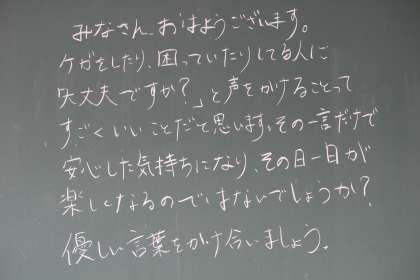 みなさん、おはようございます。
ケガをしたり、困っていたりしてる人に
「大丈夫ですか?」と声をかけることって
すごくいいことだと思います。その一言だけで
安心した気持ちになり、その日一日が
楽しくなるのではないでしょうか?
優しい言葉をかけ合いましょう。